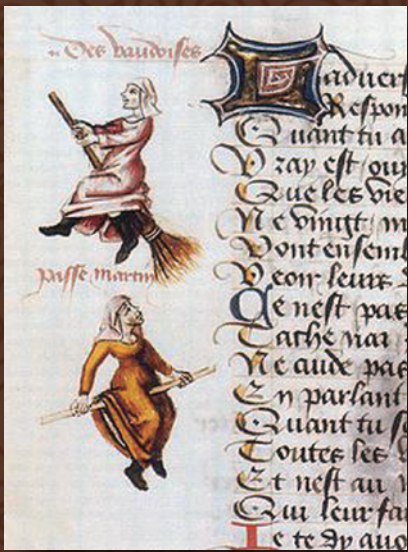 Des vaudoises
passe martin
Laduer
Respon
Quant tu a
Vray est / ouy
Que les vie
Ne vingt / m
Vont ensemb
Veoir leurs
Ce nest pas
Ne cuide pas
En parlant
Quant tu se
Toutes les
Et nest au
Qui leur fa
Je te dy auo